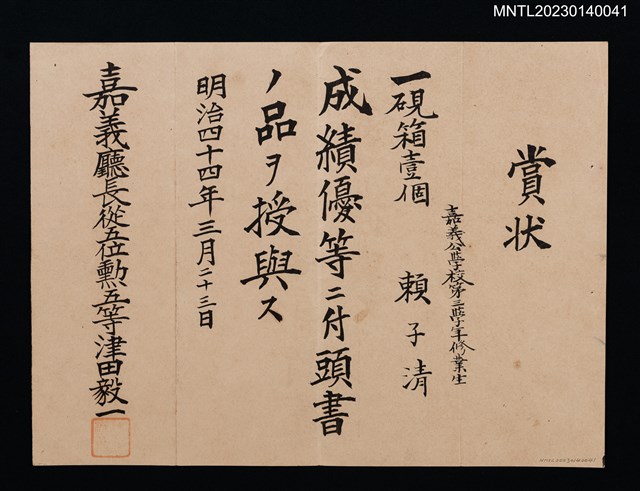 MNTL20230140041
賞状
嘉義公學校第三學年修業生
賴子清
一硯箱壹個
成績優等ニ付頭書
ノ品ヲ授與ス
明治四十四年三月二十三日
嘉義廳長從五位勲五等津田毅一